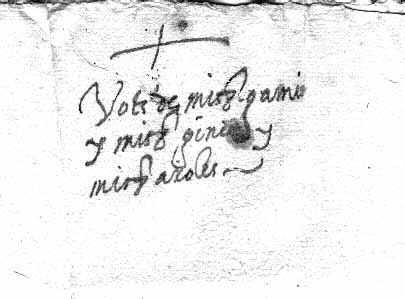 Vots de misr gamir
y misr gine y
misr aroles